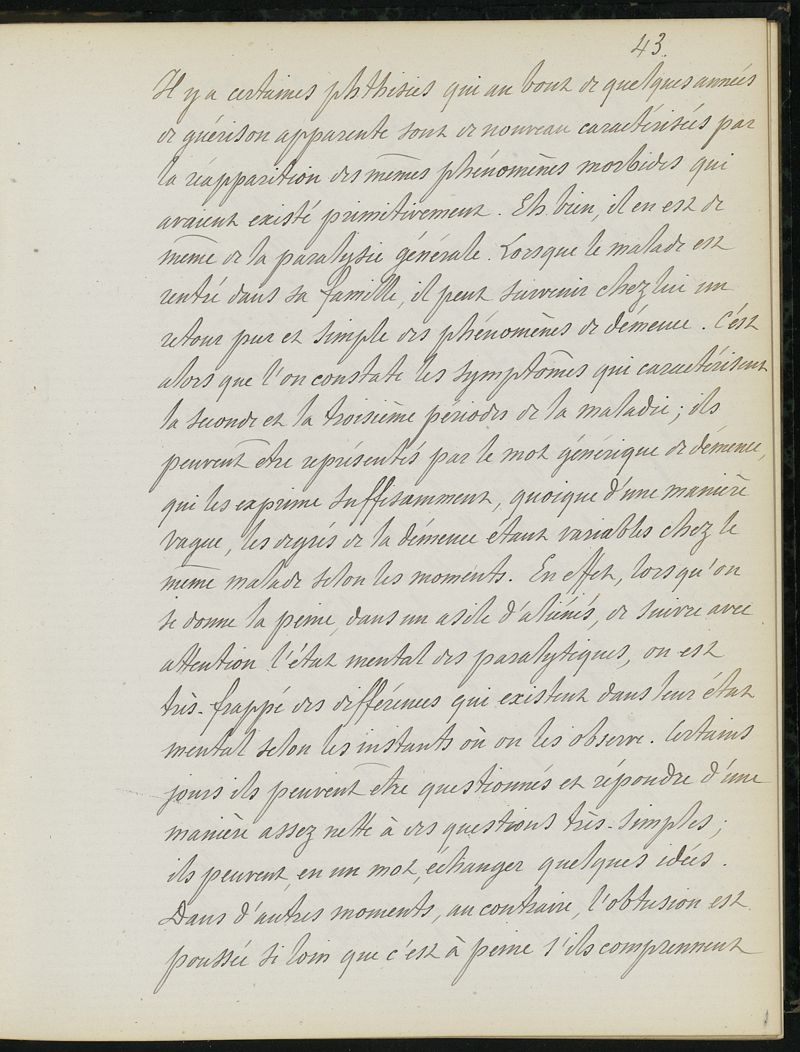 43.
Il y a certaines phthisies qui au bout de quelques années
de guérison apparente sont de nouveau caractérisées par
la réapparition des mêmes phénomènes morbides qui
avaient existé primitivement. Eh bien, il en est de
même de la paralysie générale. Lorsque le malade est
rentré dans sa famille, il peut survenir chez lui un
retour pur et simple des phénomènes de démence. C'est
alors que l'on constate les symptômes qui caractérisent
la seconde et la troisième périodes de la maladie; ils
peuvent être représentés par le mot générique de démence,
qui les exprime suffisamment, quoique d'une manière
vague, les degrés de la démence étant variables chez le
même malade selon les moments. En effet, lorsqu'on
se donne la peine, dans un asile d'aliénés, de suivre avec
attention l'état mental des paralytiques, on est
très-frappé des différences qui existent dans leur état
mental selon les instants où on les observe. Certains
jours ils peuvent être questionnés et répondre d'une
manière assez nette à des questions très-simples;
ils peuvent, en un mot, échanger quelques idées.
Dans d'autres moments, au contraire, l'obtusion est
poussée si loin que c'est à peine s'ils comprennent